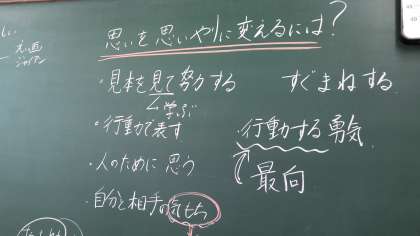 思いを思いやりに変えるには?
・見本を見て努力する
すぐまねする
学ぶ
・行動で表す
・行動する勇気
・人のために思う
最向
・自分と相手の気もち